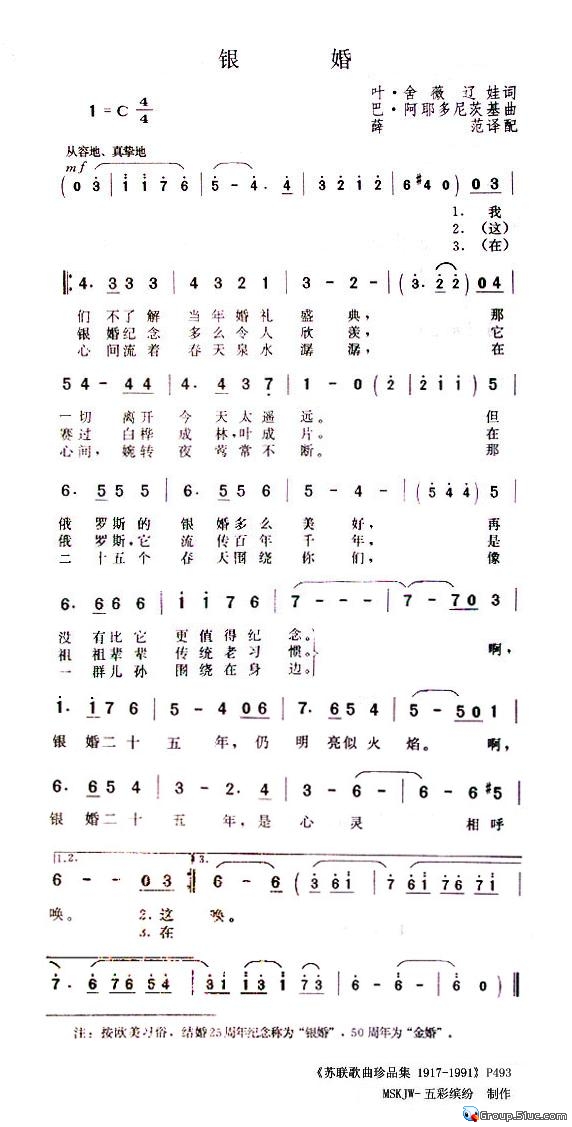 银 婚
叶·舍薇辽娃词
1=C 4/4
巴·阿耶多尼茨基曲
薛 范译配
从容地、真挚地
mf
(0 3 | i i 7 6 | 5 - 4. 4 | 3 2 1 2 | 6 #4 0) 0 3 |
1. 我
2. (这)
3. (在)
4. 3 3 3 | 4 3 2 1 | 3 - 2 - | (3. 2 2) 0 4 |
们 不了解 当年婚礼 盛 典, 那
银 婚纪念 多么令人 欣 羡, 它
心 间流着 春天泉水 潺 潺, 在
5 4 - 4 4 | 4. 4 3 7 | 1 - 0 (i | 2 i i) 5 |
一切 离开 今 天太遥 远。 但
赛过 白桦 成 林,叶成 片。 在
心间, 婉转 夜 莺常不 断。 那
6. 5 5 5 | 6. 5 5 5 | 5 - 4 - | (5 4 4) 5 |
俄 罗斯的 银 婚多么 美 好, 再
俄 罗斯,它 流 传百年 千 年, 是
二 十五个 春 天围绕 你 们, 像
6. 6 6 6 | i i 7 6 | 7 - - - | 7 - 7 0 3 |
没 有比它 更 值得纪 念。
祖 祖辈辈 传统老习 惯。 啊,
一 群儿孙 围绕在身 边。
i. i 7 6 | 5 - 4 0 6 | 7. 6 5 4 | 5 - 5 0 1 |
银 婚二十 五 年, 仍 明 亮似火 焰。 啊,
6. 6 5 4 | 3 - 2. 4 | 3 - 6 - | 6 - 6 #5 |
银 婚二十 五 年,是 心 灵 相呼
1.2. 3.
6 - - 0 3 :| 6 - 6 - | (3 6 i | 7 6 i 7 6 7 i |
唤。 2.这 唤。
3.在
7. 6 7 6 5 4 | 3 i i 3 i | 7 3 | 6 - 6 0 0) |
注:按欧美习俗,结婚25周年纪念称为“银婚”,50周年为“金婚”。
《苏联歌曲珍品集 1917-1991》P493
MSKJW-五彩缤纷 制作
Group.51uc.com